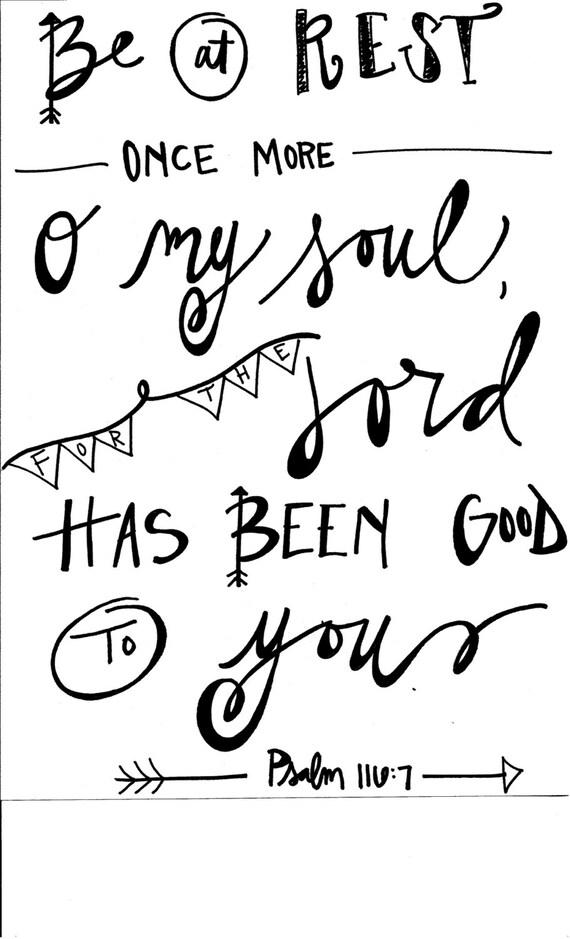 Be at REST
ONCE MORE
O my soul,
FOR THE Lord
HAS BEEN GOOD
To you
Psalm 116:7